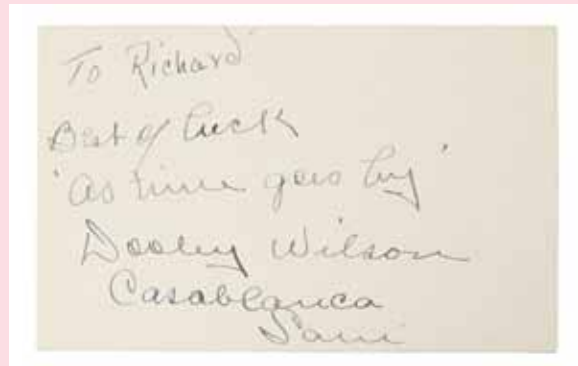 To Richard
Best of luck
'As time goes by'
Dooley Wilson
Casablanca
Sam